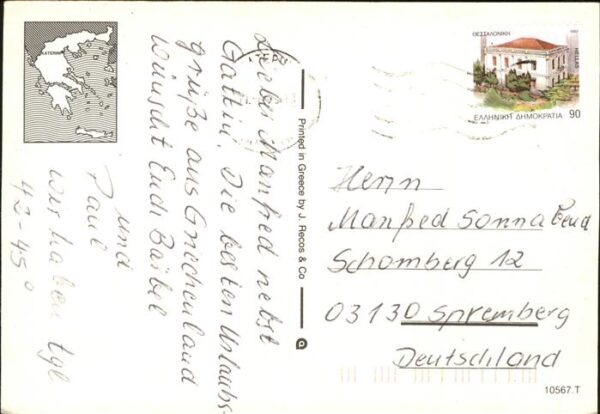 ΚΑΤΕΡΙΝΗ
Lieber Manfred nebst
Gattin! Die besten Urlaubs-
grüße aus Griechenland
wünscht Euch Bärbel
und
Paul
Wir haben tgl
42-45°
Printed in Greece by J. Recos & Co
ΘΕΣΣΑΛΟΝΙΚΗ
HELLAS
ΕΛΛΗΝΙΚΗ ΔΗΜΟΚΡΑΤΙΑ 90
Herrn
Manfred Sonnabend
Schomberg 12
03130 Spremberg
Deutschland
10567.T